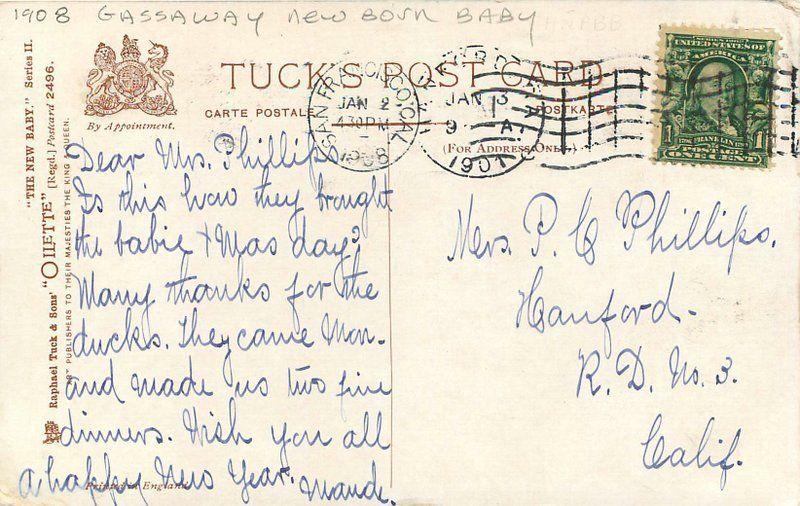 1908 GASSAWAY NEW BORN BABY
"THE NEW BABY." Series II.
Raphael Tuck & Sons' "OILETTE" [Regd.] Postcard 2496.
ART PUBLISHERS TO THEIR MAJESTIES THE KING & QUEEN.
By Appointment.
TUCK'S POST CARD
CARTE POSTALE
POSTKARTE
(FOR ADDRESS ONLY.)
SAN FRANCISCO, CAL.
JAN 2
430PM
1908
JAN 3
9 A
190
SERIES 1902
UNITED STATES OF
AMERICA
FRANKLIN
POSTAGE
1 ONE CENT 1
Dear Mrs. Phillips
Is this how they brought
the babie Xmas day?
Many thanks for the
ducks. They came Mon-
and made us two fine
dinners. Wish you all
a happy New Year.
Maude.
Printed in England
Mrs. P. C Phillips.
Hanford-
R. D. No. 3.
Calif.